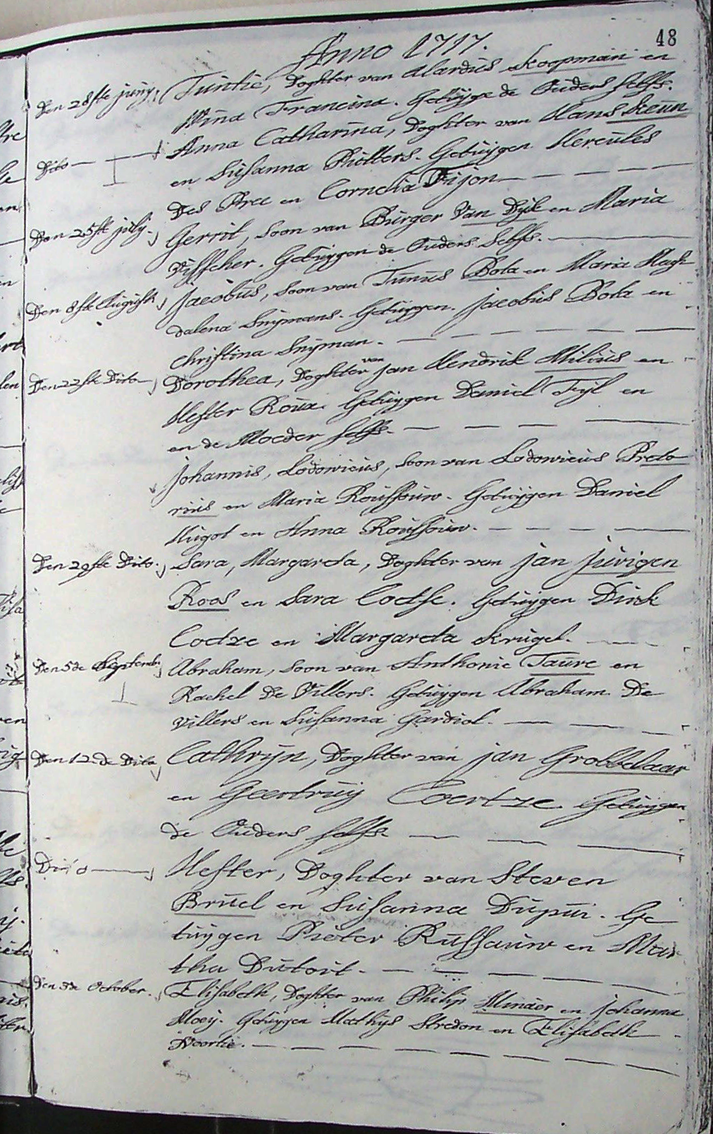 48
Anno 1717.
Den 28ste juny, Tuntie, Doghter van Alardus Koopman en
Wina Francina. Getuyge de Ouders selfs.
Dito Anna Catharina, Doghter van Hans Keun
en Susanna Pietters. Getuygen Hercules
Des Pree en Cornelia Fijon
Den 25ste july. Gerrit, soon van Burger Van Dyk en Maria
Visscher. Getuygen de Ouders selfs.
Den 8ste Jacobus, soon van Tunus Bota en Maria Magh
dalena Snijmans. Getuygen. Jacobus Bota en
Christina Snijman.
Den 22ste Dito Dorothea, Doghter van jan Hendrik Milius en
Hester Roux. Getuygen Daniel en
en de Moeder selfs.
Johannis, Lodowicus, soon van Lodowicus Preto
rius en Maria Roussouw. Getuygen Daniel
Hugot en Anna Roussouw.
Den 29ste Dito. Sara, Margareta, Doghter van jan jurigen
Roos en Sara Coetse. Getuygen Dirk
Coetze en Margareta Krugel.
Den 5de Septemb. Abraham, soon van Anthonie Faure en
Rachel De Villers. Getuygen Abraham De
Villers en Susanna Gardiol.
Den 12de Dito Cathryn, Doghter van jan Grobbelaar
en Geertruij Coertze Getuygen
de Ouders selfs.
Dito Hester, Doghter van Steven
Bruel en Susanna Dupui. Ge
tuygen Pieter Russauw en Mar
tha Dutoit.
Den 3de October. Elisabeth, Doghter van Philip Minaer en johanna
Mooij. Getuygen Mathys Stredon en Elisabeth